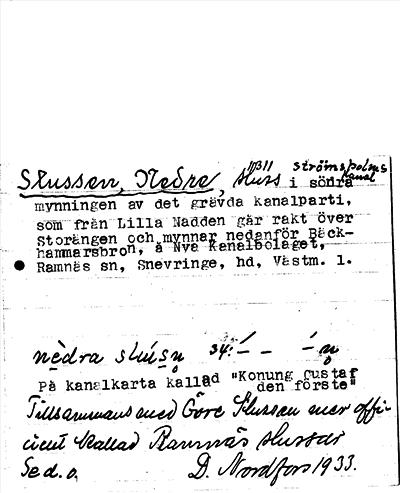 11311 Strömsholms
kanal
Slussen, Nedre, sluss i södra
mynningen av det grävda kanalparti,
som från Lilla Nadden går rakt över
Storängen och mynnar nedanför Bäck-
hammarsbron, å Nya Kanalbolaget,
Ramnäs sn, Snevringe, hd, Västm. l.
nedra slusn 34:
På kanalkarta kallad "Konung Gustaf
den förste"
Tillsammans med Övre Slussen mer offi-
ciellt kallad Ramnäs slussar
Se d. o. D. Nordfors 1933.